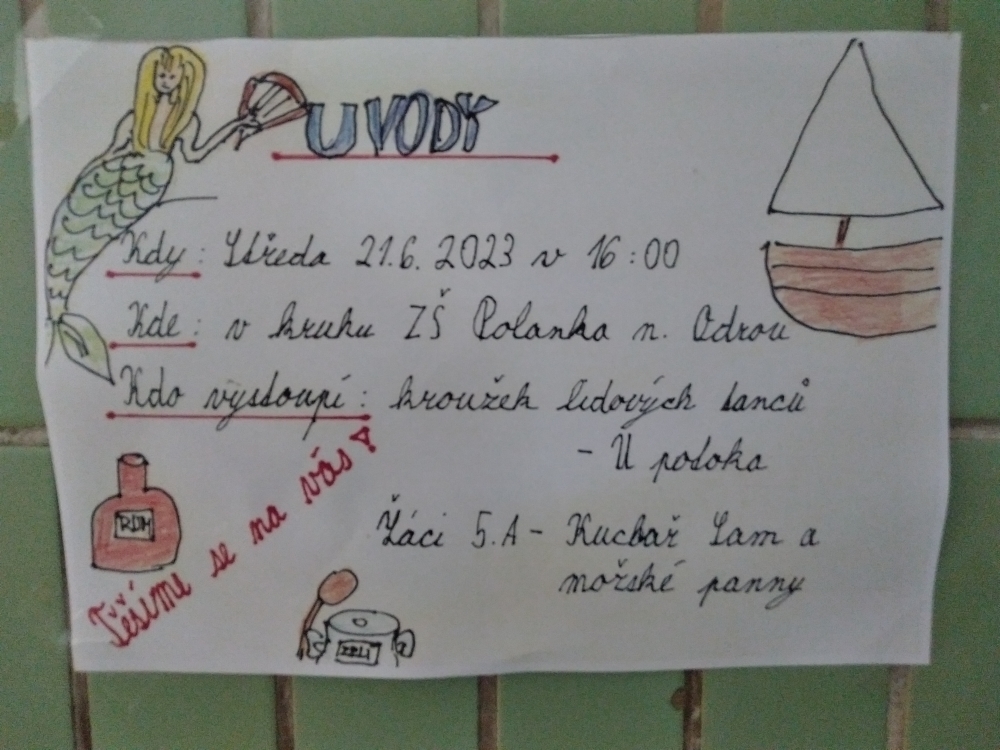 U VODY
Kdy: Středa 21.6. 2023 v 16:00
Kde: v kruhu ZŠ Polanka n. Odrou
Kdo vystoupí: kroužek lidových tanců
- U potoka
Žáci 5.A - Kuchař Sam a
mořské panny
Těšíme se na vás!
RUM
ZELÍ